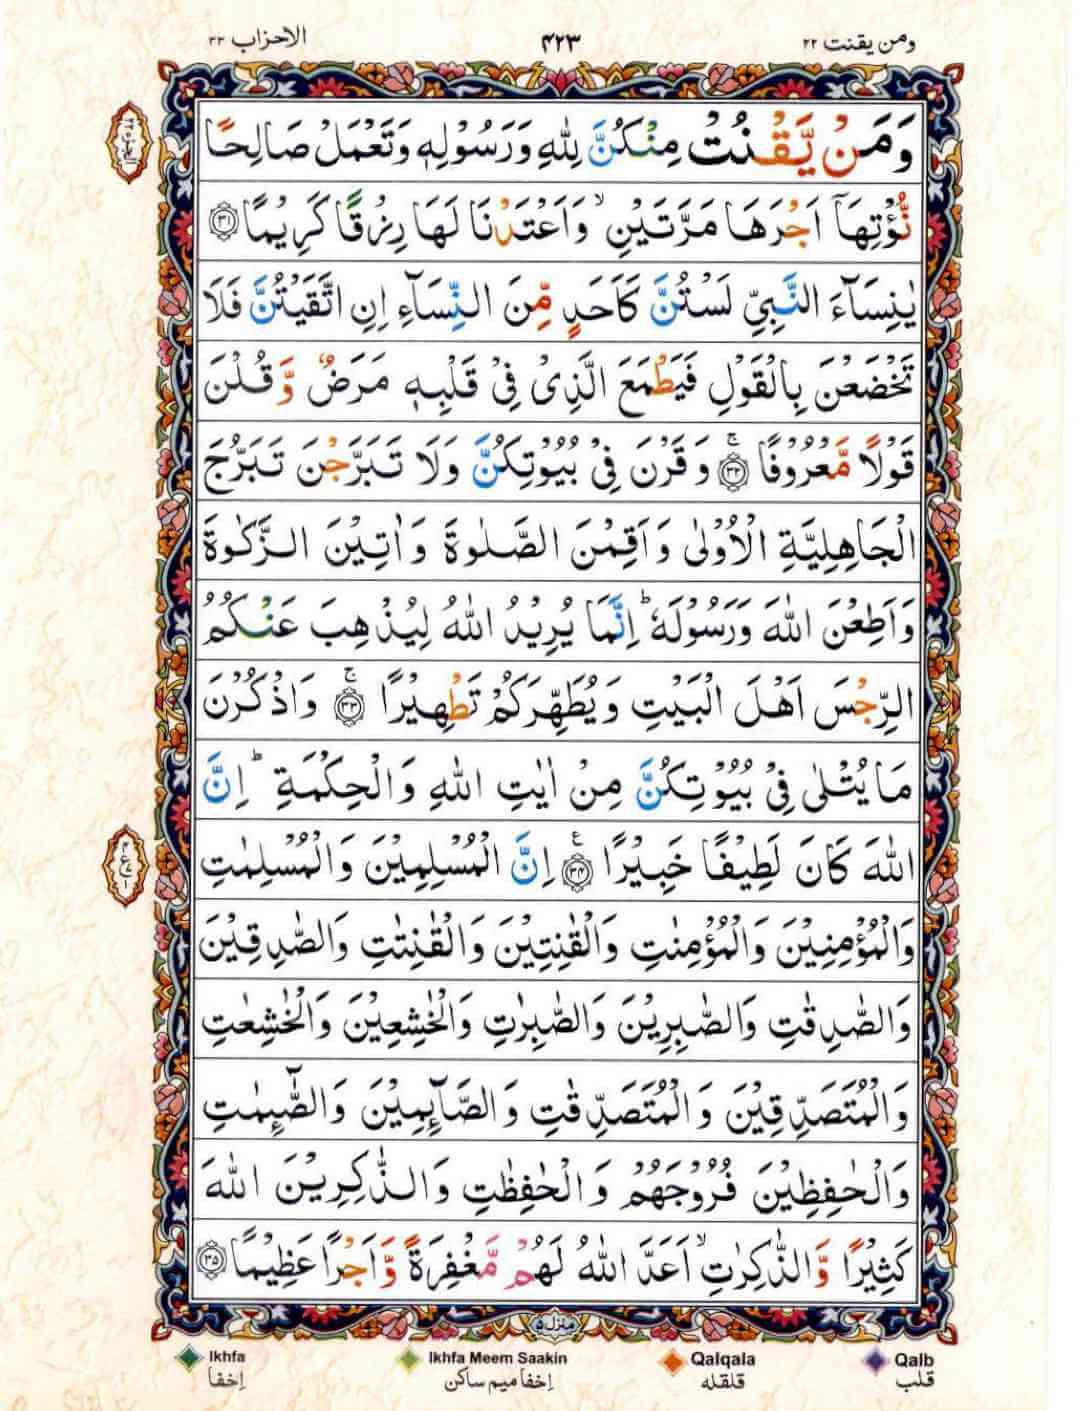 ومن یقنت ۲۲
۴۲۳
الاحزاب ۳۳
وَمَنْ یَّقْنُتْ مِنْكُنَّ لِلّٰهِ وَرَسُوْلِهٖ وَتَعْمَلْ صَالِحًا
نُّؤْتِهَاۤ اَجْرَهَا مَرَّتَیْنِ ۙ وَاَعْتَدْنَا لَهَا رِزْقًا كَرِیْمًا ﴿۳۱﴾
یٰنِسَآءَ النَّبِیِّ لَسْتُنَّ كَاَحَدٍ مِّنَ النِّسَآءِ اِنِ اتَّقَیْتُنَّ فَلَا
تَخْضَعْنَ بِالْقَوْلِ فَیَطْمَعَ الَّذِیْ فِیْ قَلْبِهٖ مَرَضٌ وَّ قُلْنَ
قَوْلًا مَّعْرُوْفًا ﴿۳۲﴾ ۚ وَ قَرْنَ فِیْ بُیُوْتِكُنَّ وَلَا تَبَرَّجْنَ تَبَرُّجَ
الْجَاهِلِیَّةِ الْاُوْلٰی وَاَقِمْنَ الصَّلٰوةَ وَاٰتِیْنَ الزَّكٰوةَ
وَاَطِعْنَ اللّٰهَ وَرَسُوْلَهٗ ؕ اِنَّمَا یُرِیْدُ اللّٰهُ لِیُذْهِبَ عَنْكُمُ
الرِّجْسَ اَهْلَ الْبَیْتِ وَیُطَهِّرَكُمْ تَطْهِیْرًا ﴿۳۳﴾ ۚ وَاذْكُرْنَ
مَا یُتْلٰی فِیْ بُیُوْتِكُنَّ مِنْ اٰیٰتِ اللّٰهِ وَالْحِكْمَةِ ؕ اِنَّ
اللّٰهَ كَانَ لَطِیْفًا خَبِیْرًا ﴿۳۴﴾ ع اِنَّ الْمُسْلِمِیْنَ وَالْمُسْلِمٰتِ
وَالْمُؤْمِنِیْنَ وَالْمُؤْمِنٰتِ وَالْقٰنِتِیْنَ وَالْقٰنِتٰتِ وَالصّٰدِقِیْنَ
وَالصّٰدِقٰتِ وَالصّٰبِرِیْنَ وَالصّٰبِرٰتِ وَالْخٰشِعِیْنَ وَالْخٰشِعٰتِ
وَالْمُتَصَدِّقِیْنَ وَالْمُتَصَدِّقٰتِ وَالصَّآئِمِیْنَ وَالصّٰٓئِمٰتِ
وَالْحٰفِظِیْنَ فُرُوْجَهُمْ وَالْحٰفِظٰتِ وَالذّٰكِرِیْنَ اللّٰهَ
كَثِیْرًا وَّالذّٰكِرٰتِ ۙ اَعَدَّ اللّٰهُ لَهُمْ مَّغْفِرَةً وَّاَجْرًا عَظِیْمًا ﴿۳۵﴾
منزل ۵
Ikhfa Ikhfa Meem Saakin Qalqala Qalb
اِخفا اِخفا میم ساکن قلقله قلب